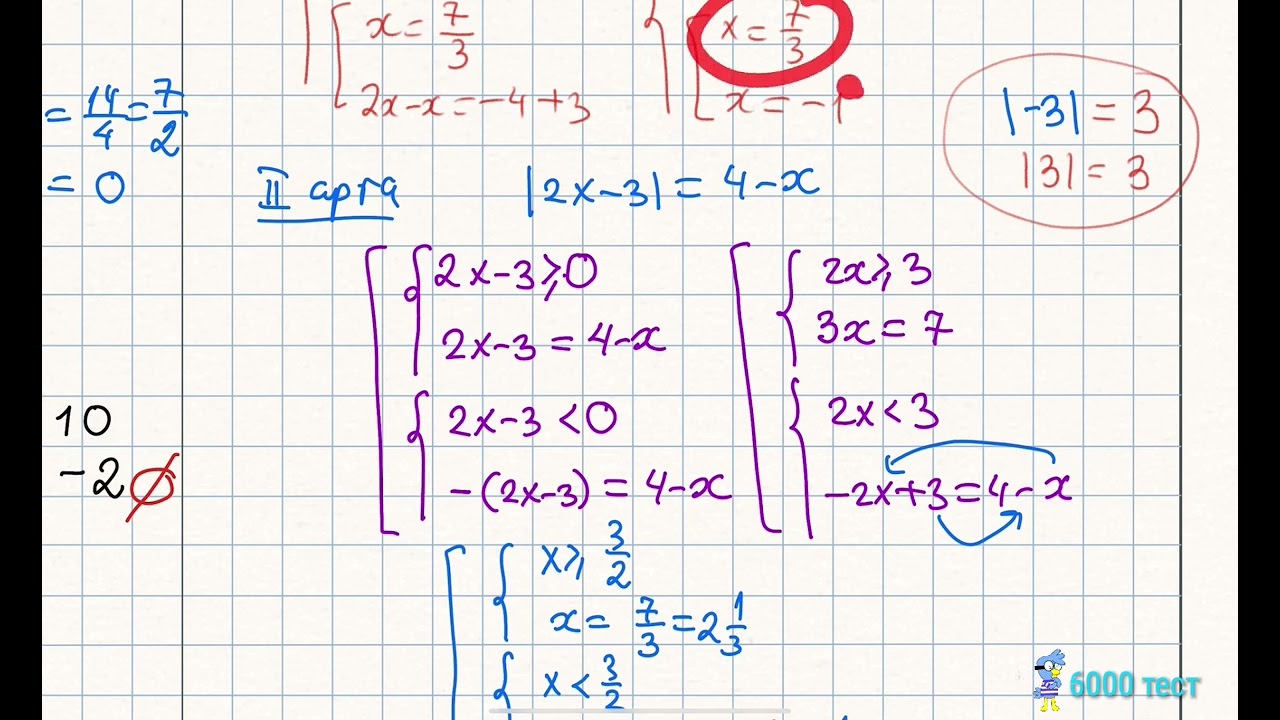 x = 7/3
x = 7/3
2x-x = -4+3
x = -1
= 14/4 = 7/2
= 0
|-3| = 3
|3| = 3
II арта
|2x-3| = 4-x
2x-3 ⩾ 0
2x ⩾ 3
2x-3 = 4-x
3x = 7
10
2x-3 < 0
2x < 3
-2 ∅
-(2x-3) = 4-x
-2x+3 = 4-x
x ⩾ 3/2
x = 7/3 = 2 1/3
x < 3/2
6000 тест